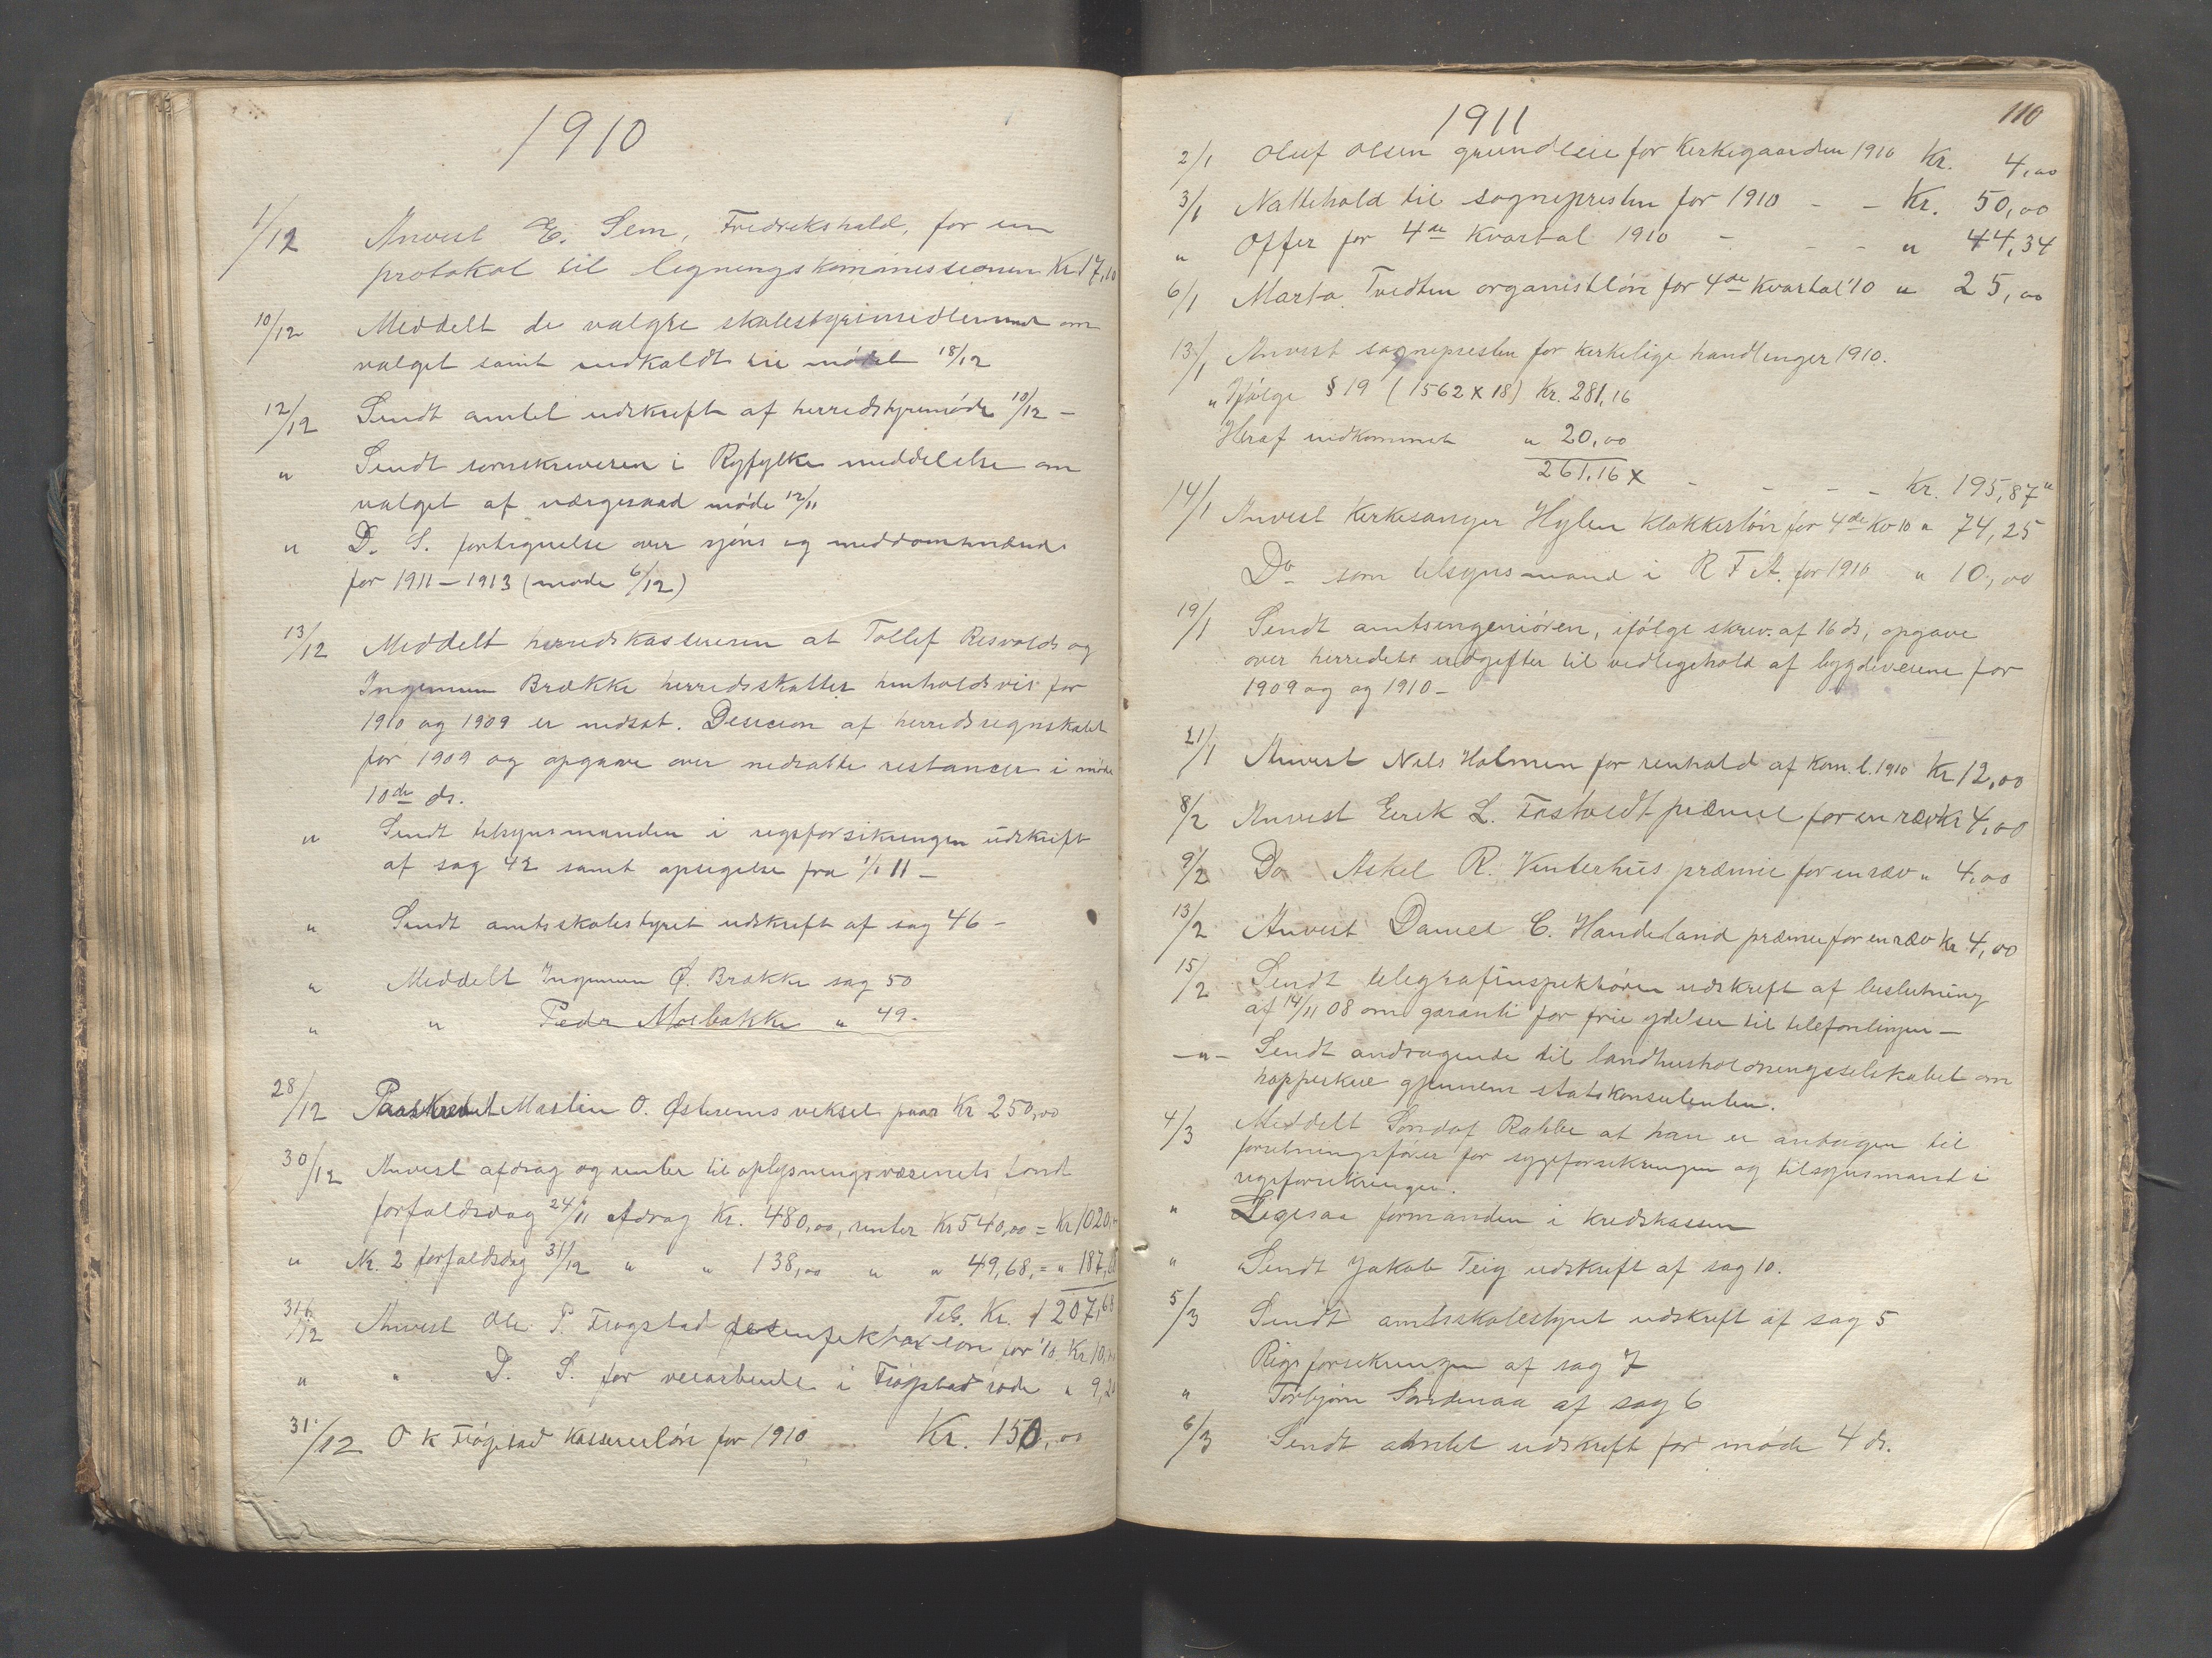 1910
1/12 Anvist E. Sem, Fredrikshald, for en
protokol til ligningskommissionen Kr 17,10
10/12 Meddelt de valgte skolestyrimedlemmer om
valget samt indkaldt til mødet 18/12
12/12 Sendt amtet udskrift af herredstyremøde 10/12 –
" Sendt sorenskriveren i Ryfylke meddelelse om
valget af værgeraad møde 12/11
" D. S. fortegnelse over sjøns og meddomsmænd
for 1911 – 1913 (møde 6/12)
13/12 Meddelt herredskassereren at Tollef Risvolds og
Ingemun Brække herredsskatter henholdsvis for
1910 og 1909 er nedsat. Desicion af herredsregnskabet
for 1909 og opgave over nedsatte restancer i møde
10de ds.
" Sendt tilsynsmanden i rigsforsikringen udskrift
af sag 42 samt opsigelse fra 1/1 11 –
" Sendt amtsskolestyret udskrift af sag 46 –
" Meddelt Ingemun Ø. Brække sag 50
" " Peder Moebakke " 49.
28/12 Paaskrevet Martin O. Østrems veksel paa Kr 250,00
30/12 Anvist afdrag og renter til oplysningsvæsenets fond
forfaldsdag 24/11 Afdrag Kr. 480,00, renter Kr 540,00 = Kr 1020,
" Nr. 2 forfaldsdag 31/12 " " 138,00 " " 49,68, = " 187,68
Til. Kr. 1207,68
31/12 Anvist Ole P. Frøgstad desenfektør løn for '10. Kr 10,
" " D. S. for veiarbeide i Frøgstad rode " 9,20
31/12 O K Frøgstad kassererløn for 1910 Kr. 150,00
110
1911
2/1 Oluf Olsen grundleie for Kirkegaarden 1910 Kr. 4,00
3/1 Nattehold til sognepresten for 1910 - - Kr. 50,00
" Offer for 4de Kvartal 1910 - - - " 44,34
6/1 Marta Tvedten organistløn for 4de Kvartal '10 " 25,00
13/1 Anvist sognepresten for kirkelige handlinger 1910.
" Ifølge § 19 (1562 x 18) Kr. 281,16
Heraf indkommet " 20,00
261,16 x - - - - Kr. 195,87 "
14/1 Anvist Kirkesanger Hylen klokkerløn for 4de Kv 10 " 74,25
Do som tilsynsmand i R F A. for 1910 " 10,00
19/1 Sendt amtsingeniören, ifølge skriv. af 16 ds, opgave
over herredets udgifter til vedligehold af bygdeveiene for
1909 og og 1910 –
21/1 Anvist Nils Holmen for renhold af Kom. l. 1910 Kr 12,00
8/2 Anvist Eirik L. Fastvedt præmie for en ræv kr 4,00
9/2 Do Askel R. Vinterhus præmie for en ræv " 4,00
13/2 Anvist Daniel C. Handeland præmie for en ræv Kr 4,00
15/2 Sendt telegrafinspektøren udskrift af beslutning
af 14/11 08 om garanti for frie ydelser til telefonlinjen –
– " – Sendt andragende til landhusholdningsselskabet om
kopperkue gjennem statskonsulenten.
4/3 Meddelt Sondof Rabbe at han er antagen til
forretningsfører for sygeforsikringen og tilsynsmand i
rigsforsikringen.
" Ligesaa formanden i kredskassen
" Sendt Jakob Teig udskrift af sag 10.
5/3 Sendt amtsskolestyret udskrift af sag 5
Rigsforsikringen af sag 7
" Torbjørn Sandenaa af sag 6
6/3 Sendt amtet udskrift for møde 4 ds.